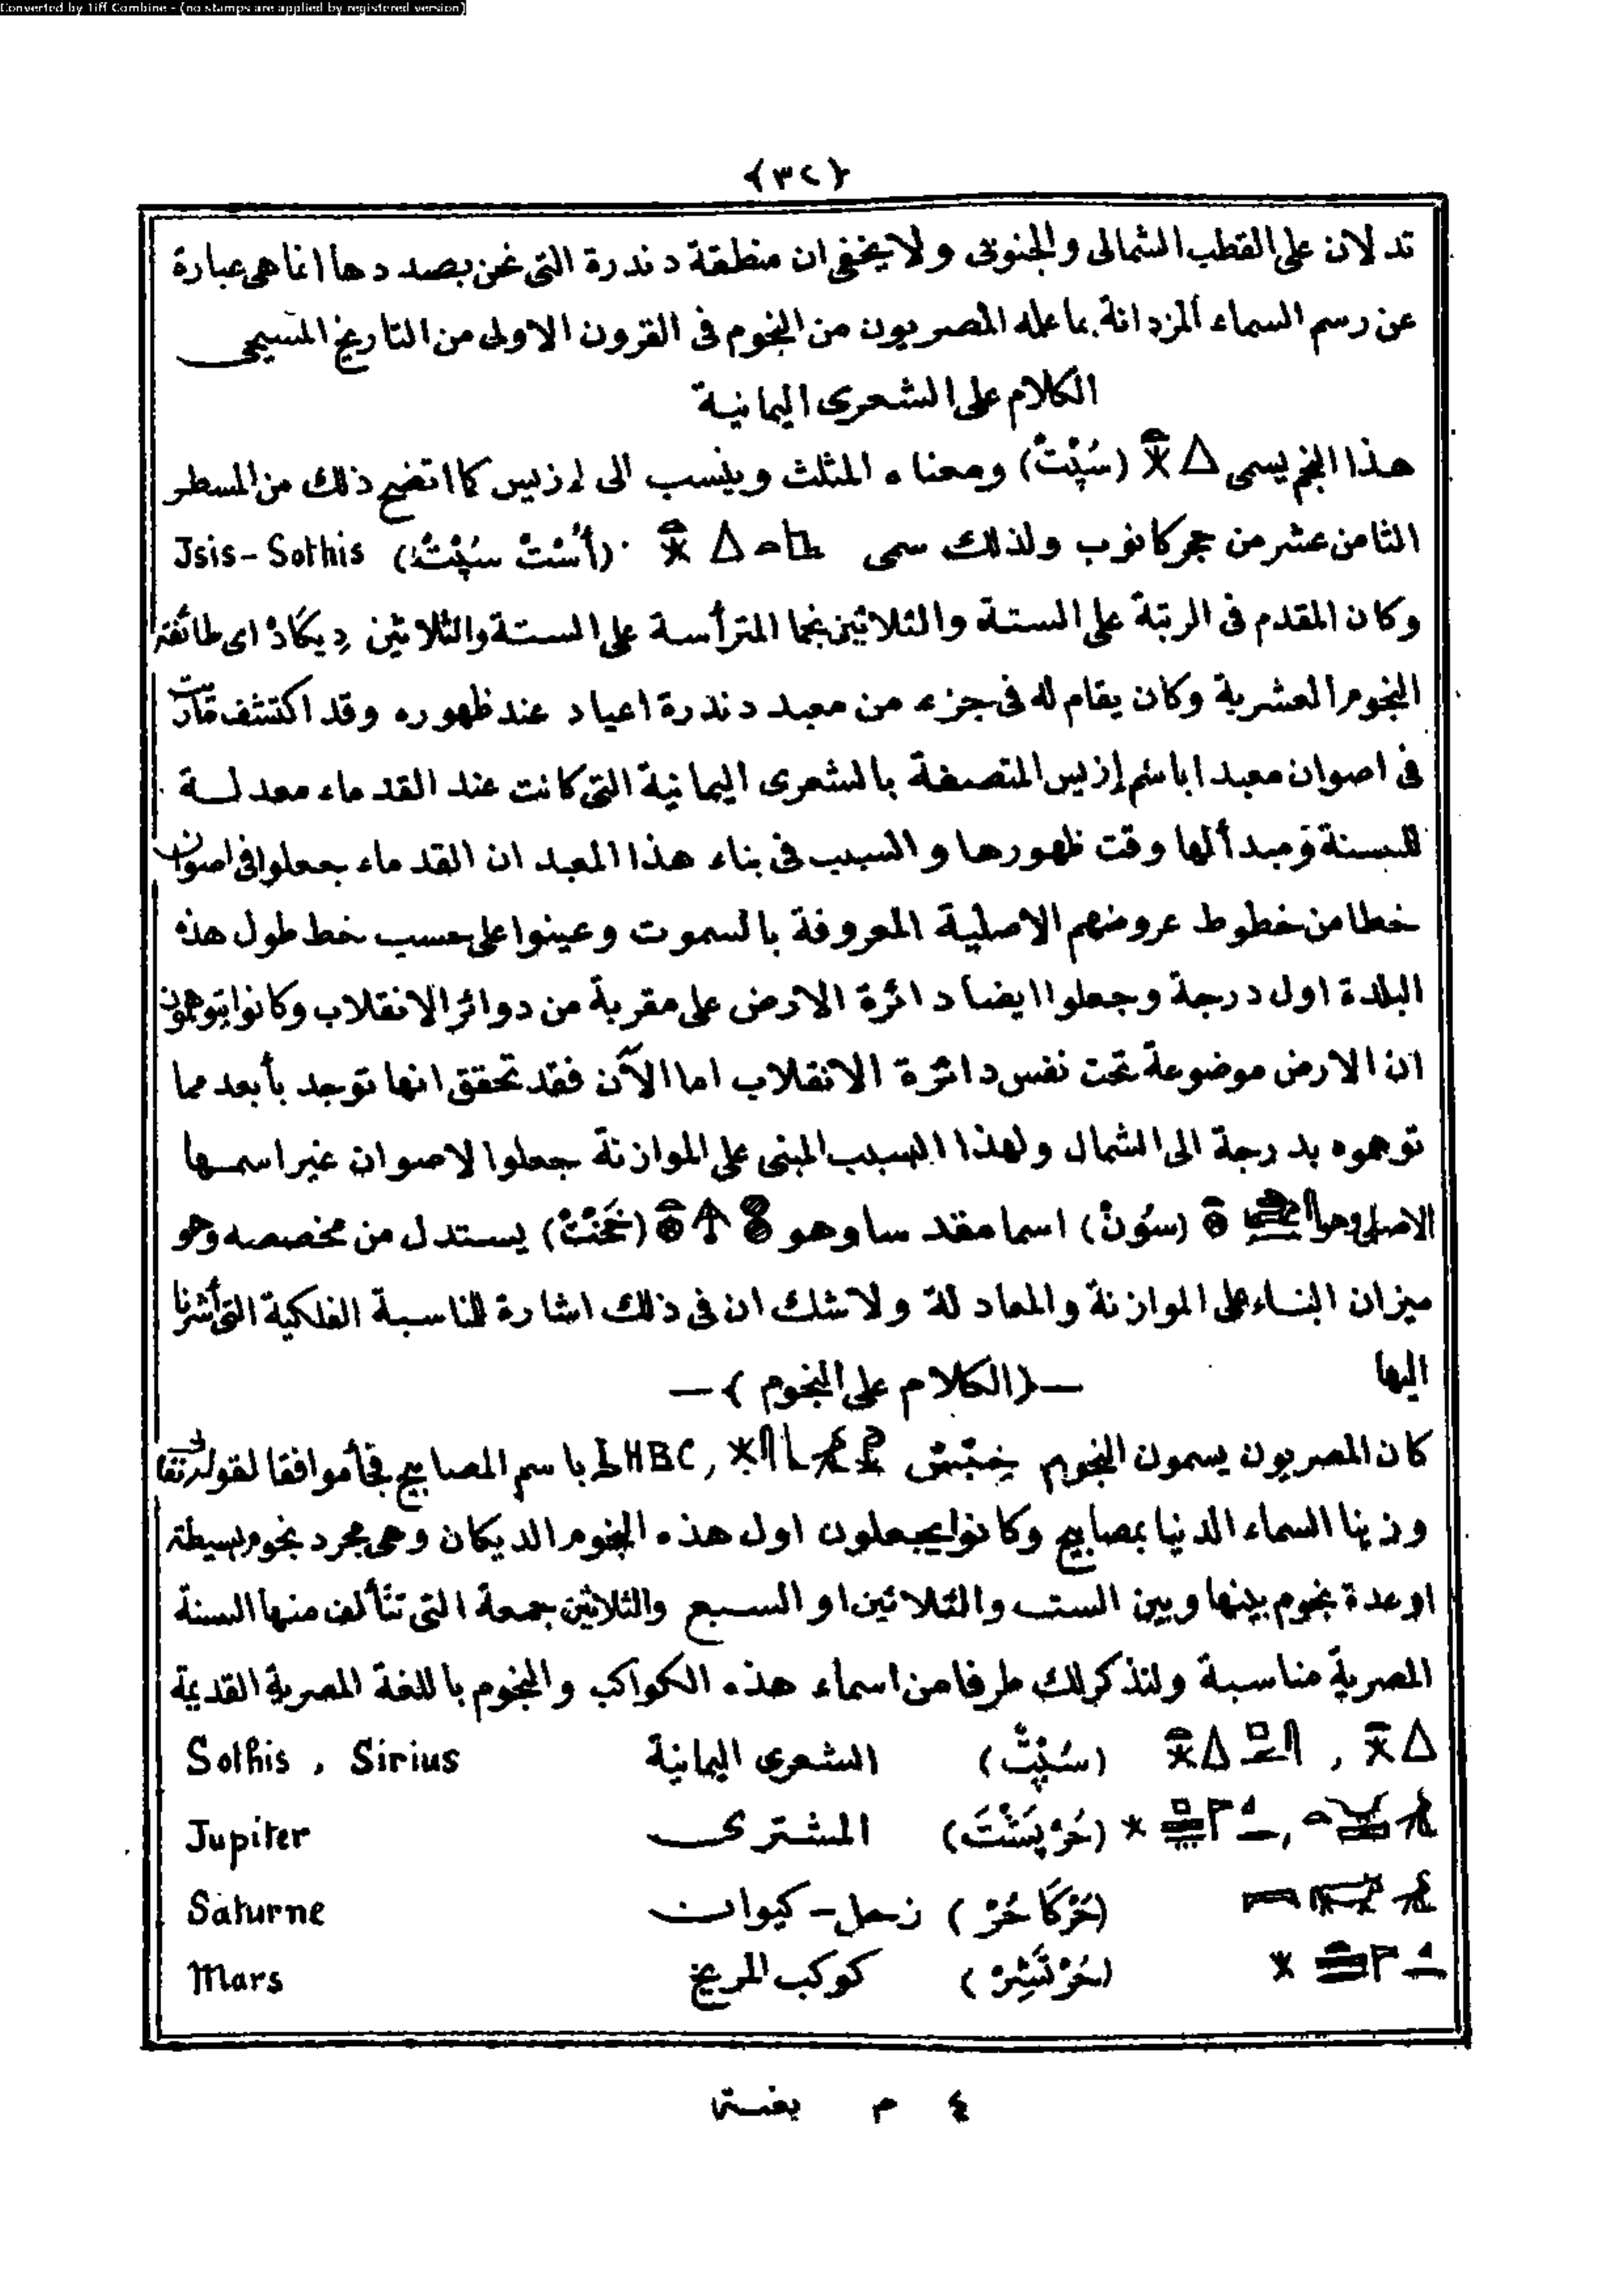 Converted by Tiff Combine - (no stamps are applied by registered version)
{٣٢}
تدلان على القطب الشمالى والجنوبى ولا يخفى ان منطقة دندرة التى نحن بصددها انما هى عبارة
عن رسم السماء المزدانة بما عمله المصريون من النجوم فى القرون الاولى من التاريخ المسيحى
الكلام على الشعرى اليمانية
هذا النجم يسمى (سُپْتْ) ومعناه المثلث وينسب الى إزيس كما اتضح ذلك من السطر
الثامن عشر من حجر كانوب ولذلك سمى (أسْتْ سُپْتْ) Jsis-Sothis
وكان المقدم فى الرتبة على الستة والثلاثين نجما المترأسة على الستة والثلاثين دِيكَادْ اى طائفة
النجوم العشرية وكان يقام له فى جزء من معبد دندرة اعياد عند ظهوره وقد اكتشف
فى اصوان معبدا باسم إزيس المتصفة بالشعرى اليمانية التى كانت عند القدماء معدلة
للسنة ومبدأ لها وقت ظهورها والسبب فى بناء هذا المعبد ان القدماء جعلوا فى اصوان
خطا من خطوط عروضهم الاصلية المعروفة بالسموت وعينوا على حسب خط طول هذه
البلدة اول درجة وجعلوا ايضا دائرة الارض على مقربة من دوائر الانقلاب وكانوا يتوهمون
ان الارض موضوعة تحت نفس دائرة الانقلاب اما الآن فقد تحقق انها توجد بأبعد مما
توهموه بدرجة الى الشمال ولهذا السبب المبنى على الموازنة جعلوا لاصوان غير اسمها
الاصلى وهو (سُونْ) اسما مقدسا وهو (خَنْتْ) يستدل من مخصصه وهو
ميزان البناء على الموازنة والمعادلة ولا شك ان فى ذلك اشارة للناسبة الفلكية التى أشرنا
اليها
—{الكلام على النجوم}—
كان المصريون يسمون النجوم خِبْسْ HBC, باسم المصابيح فجأ موافقا لقوله تعالى
وزينا السماء الدنيا بمصابيح وكانوا يجعلون اول هذه النجوم الديكان وهى مجرد نجوم بسيطة
او عدة نجوم بينها وبين الست والثلاثين او السبع والثلاثين جمعة التى تتألف منها السنة
المصرية مناسبة ولنذكر لك طرفا من اسماء هذه الكواكب والنجوم باللغة المصرية القديمة
(سُپْتْ) الشعرى اليمانية Sothis , Sirius
(حُرْ پَشْتَ) المشترى Jupiter
(حُرْكَا حُرْ) زحل - كيوان Saturne
(حُرْ تَشِرْ) كوكب المريخ Mars
٤ م